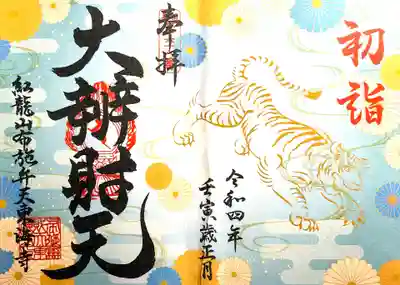 初詣
令和四年
壬寅歳正月
奉拝
大辨財天
紅龍山布施弁天東海寺